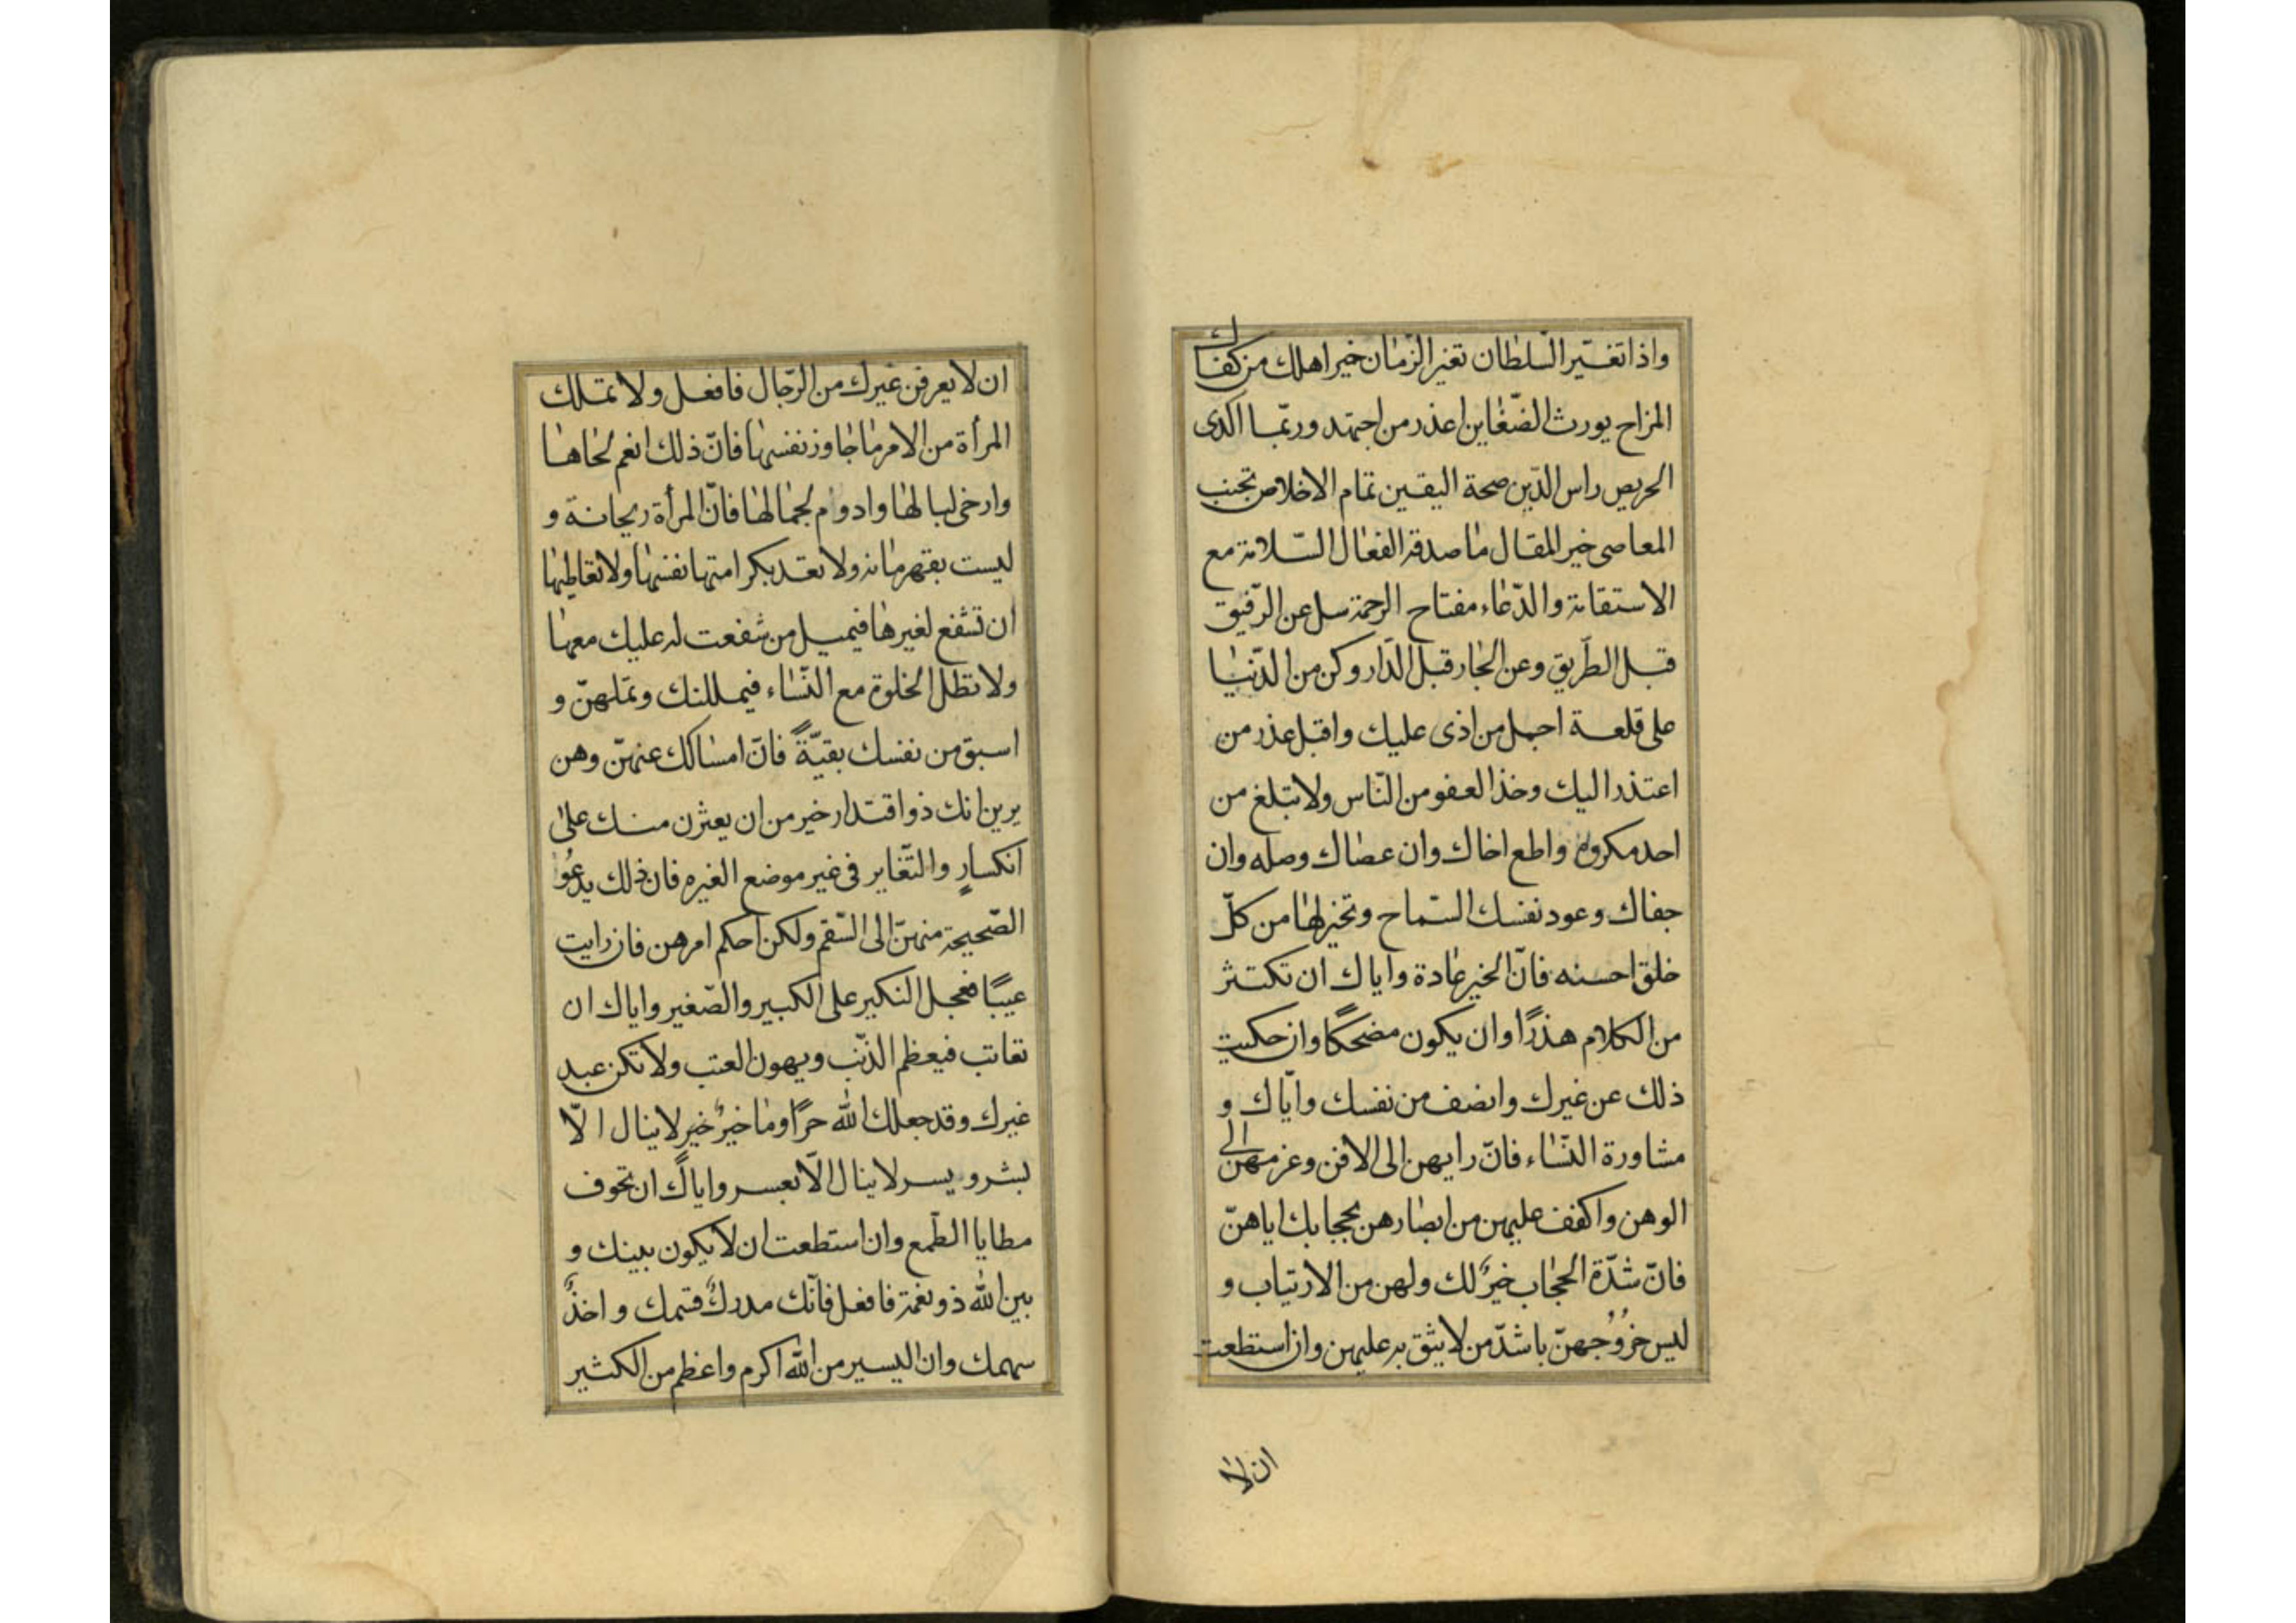 واذا تغيّر السّلطان تغير الزّمان خير اهلك من كفاك
المزاح يورث الضّغاين اعذر من اجتهد وربّما اكدى
الحريص راس الدّين صحة اليقين تمام الاخلاص تجنب
المعاصى خير المقال ما صدقه الفعال السّلامة مع
الاستقامة والدّعاء مفتاح الرحمة سل عن الرّفيق
قبل الطّريق وعن الجار قبل الدّار وكن من الدّنيا
على قلعة احمل من اذى عليك واقبل عذر من
اعتذر اليك وخذ العفو من النّاس ولا تبلغ من
احد مكروه واطع اخاك وان عصاك وصله وان
جفاك وعود نفسك السّماح وتخير لها من كلّ
خلق احسنه فانّ الخير عادة واياك ان تكثر
من الكلام هذرًا وان يكون مضحكًا وان حكيت
ذلك عن غيرك وانصف من نفسك وايّاك و
مشاورة النّساء فانّ رايهن الى الافن وعزمهن الى
الوهن واكفف عليهن من ابصارهن بحجابك اياهنّ
فانّ شدّة الحجاب خيرٌ لك ولهن من الارتياب و
ليس خُرُوجهنّ باشدّ من لا يثق به عليهن وان استطعت
ان لا
ان لا يعرفن غيرك من الرّجال فافعل ولا تملك
المرأة من الامر ما جاوز نفسها فانّ ذلك انعم لحاها
وارخى لبالها وادوام لجمالها فانّ المرأة ريحانة و
ليست بقهرمانه ولا تعد بكرامتها نفسها ولا تعاطيها
ان تشفع لغيرها فيميل من شفعت له عليك معها
ولا تطل الخلوة مع النّساء فيمللنك وتملهنّ و
اسبق من نفسك بقيّةً فانّ امساكك عنهنّ وهن
يرين انك ذو اقتدار خير من ان يعثرن منك على
انكسارٍ والتّغاير فى غير موضع الغيره فان ذلك يدعُو
الصّحيحة منهنّ الى السّقم ولكن احكم امرهن فان رايت
عيبًا فعجل النكير على الكبير والصّغير واياك ان
تعاتب فيعظم الذّنب ويهون العتب ولا تكن عبد
غيرك وقد جعلك الله حرًا وما خيرٌ خير لا ينال الّا
بشر ويسر لا ينال الّا بعسر واياك ان تخوف
مطايا الطّمع وان استطعت ان لا يكون بينك و
بين الله ذو نعمة فافعل فانّك مدركٌ قسمك واخذٌ
سهمك وان اليسير من الله اكرم واعظم من الكثير